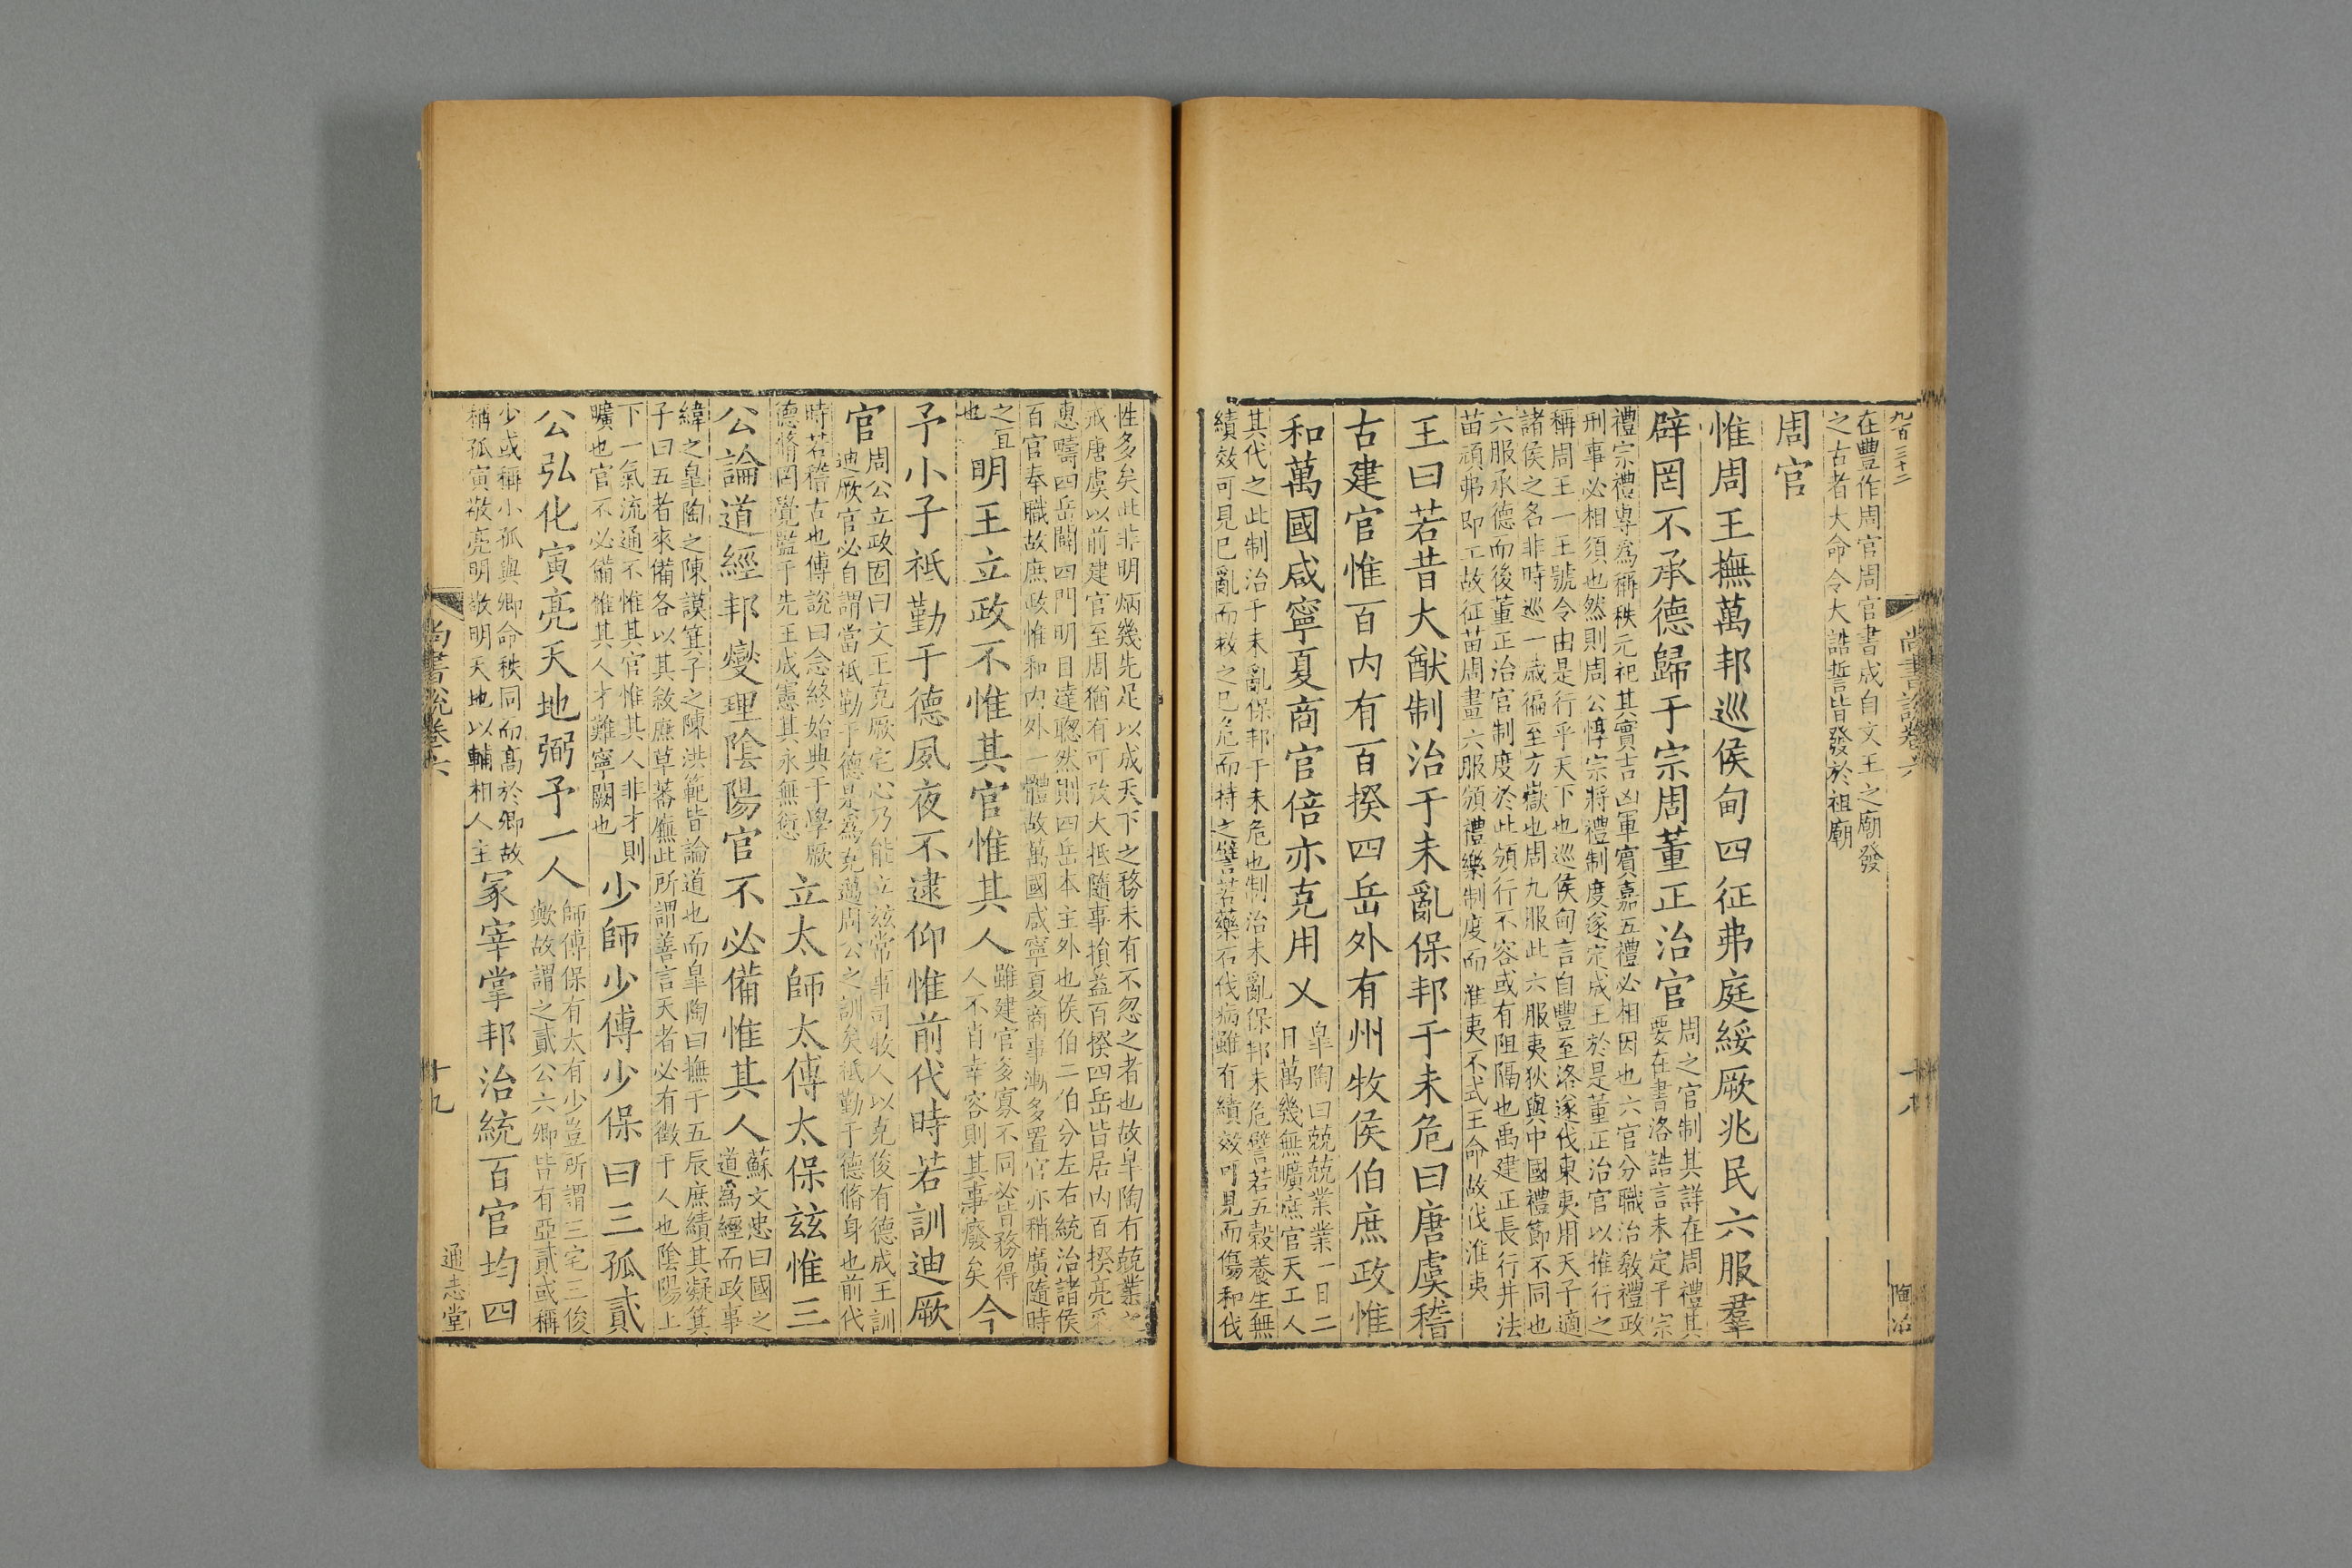 九百三十二
尚書說卷六
陶冶
在豐作周官周官書成自文王之廟發
之古者大命令大誥誓皆發於祖廟
周官
惟周王撫萬邦巡侯甸四征弗庭綏厥兆民六服羣
辟罔不承德歸于宗周董正治官
周之官制其詳在周禮其
要在書洛誥言未定于宗
禮宗禮專為稱秩元祀其實吉凶軍賓嘉五禮必相因也六官分職治教禮政
刑事必相須也然則周公惇宗將禮制度遂定成王於是董正治官以推行之
稱周王一王號令由是行乎天下也巡侯甸言自豐至洛遂伐東夷用天子適
諸侯之名非時巡一歲徧至方嶽也周九服此六服夷狄與中國禮節不同也
六服承德而後董正治官制度於此頒行不容或有阻隔也禹建正長行井法
苗頑弗即工故征苗周畫六服頒禮樂制度而淮夷不式王命故伐淮夷
王曰若昔大猷制治于未亂保邦于未危曰唐虞稽
古建官惟百内有百揆四岳外有州牧侯伯庶政惟
和萬國咸寧夏商官倍亦克用乂
皐陶曰兢兢業業一日二
日萬幾無曠庶官天工人
其代之此制治于未亂保邦于未危也制治未亂保邦未危譬若五穀養生無
績效可見已亂而救之已危而持之譬若藥石伐病雖有績效可見而傷和伐
性多矣此非明炳幾先足以成天下之務未有不忽之者也故皐陶有兢業之
戒唐虞以前建官至周猶有可攷大抵隨事損益百揆四岳皆居内百揆亮采
惠疇四岳闢四門明目達聰然則四岳本主外也侯伯二伯分左右統治諸侯
百官奉職故庶政惟和内外一體故萬國咸寧夏商事漸多置官亦稍廣隨時
之宜
也
明王立政不惟其官惟其人
雖建官多寡不同必皆務得
人不肖幸容則其事廢矣
今
予小子祗勤于德夙夜不逮仰惟前代時若訓迪厥
官
周公立政固曰文王克厥宅心乃能立兹常事司牧人以克俊有德成王訓
迪厥官必自謂當祗勤于德是為克邁周公之訓矣祗勤于德脩身也前代
時若稽古也傅說曰念終始典于學厥
德脩罔覺監于先王成憲其永無愆
立太師太傅太保兹惟三
公論道經邦燮理陰陽官不必備惟其人
蘇文忠曰國之
道為經而政事
緯之皐陶之陳謨箕子之陳洪範皆論道也而皐陶曰撫于五辰庶績其凝箕
子曰五者來備各以其敘庶草蕃廡此所謂善言天者必有徵于人也陰陽上
下一氣流通不惟其官惟其人非才則
曠也官不必備惟其人才難寧闕也
少師少傅少保曰三孤貳
公弘化寅亮天地弼予一人
師傅保有太有少豈所謂三宅三俊
歟故謂之貳公六卿皆有亞貳或稱
少或稱小孤與卿命秩同而髙於卿故
稱孤寅敬亮明敬明天地以輔相人主
冢宰掌邦治統百官均四
尚書說卷六
十九
通志堂